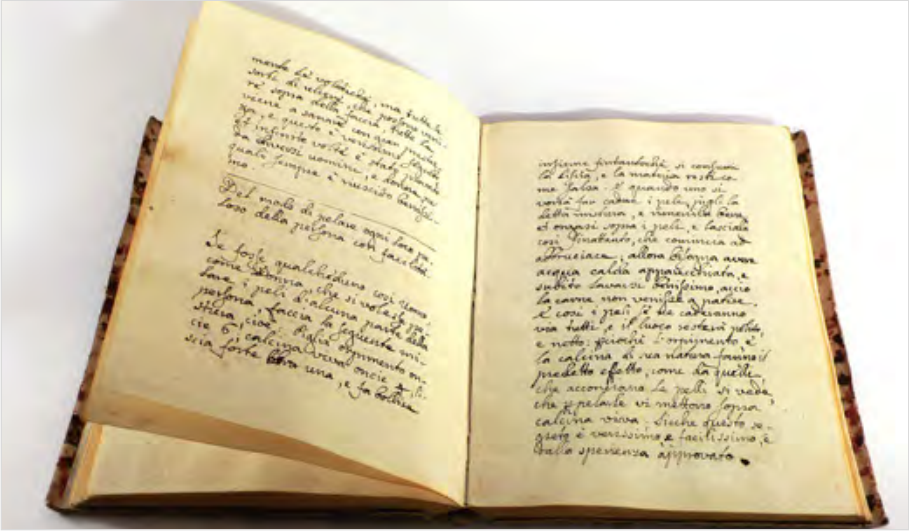 mente la volatica, ma tutte le
sorti di che possono veni-
re sopra della faccia, tutte le
viene a sanare con gran prestez-
za, e questo è verissimo, perché
et infinite volte è stato provato
da diversi uomini, e donne, per
quale sempre è riuscito benissi-
mo.
Del modo di pelare ogni loco pi-
loso della persona con facilità.
Se fosse qualcheduno così uomo,
come donna, che si volesse pe-
lare i peli d'alcuna parte della
persona, faccia la seguente mi-
stura, cioè: Piglia orpimento on-
cie 6, calcina viva oncie li-
scia forte una, e fa bollire
insieme fintantoché si consumi
la lisia, e la materia resti co-
me salsa. E quando uno si
vorrà far cadere i peli, pigli la
detta mistura, e
et ongasi sopra i peli, e lasciala
così che comincia ad
abbruciare; allora bisogna avere
acqua calda apparecchiata, e
subito lavarsi benissimo, acciò
la carne non venisse a patire.
E così i peli se ne caderanno
via tutti, e il luoco resterà polito,
e netto: perché l'orpimento e
la calcina di sua natura fanno il
predetto effetto, come da quelli
che acconciano le pelli si vede,
che pelarle vi mettono sopra
calcina viva. Sicché questo se-
greto è verissimo, e facilissimo, e
dallo sperienza approvato.